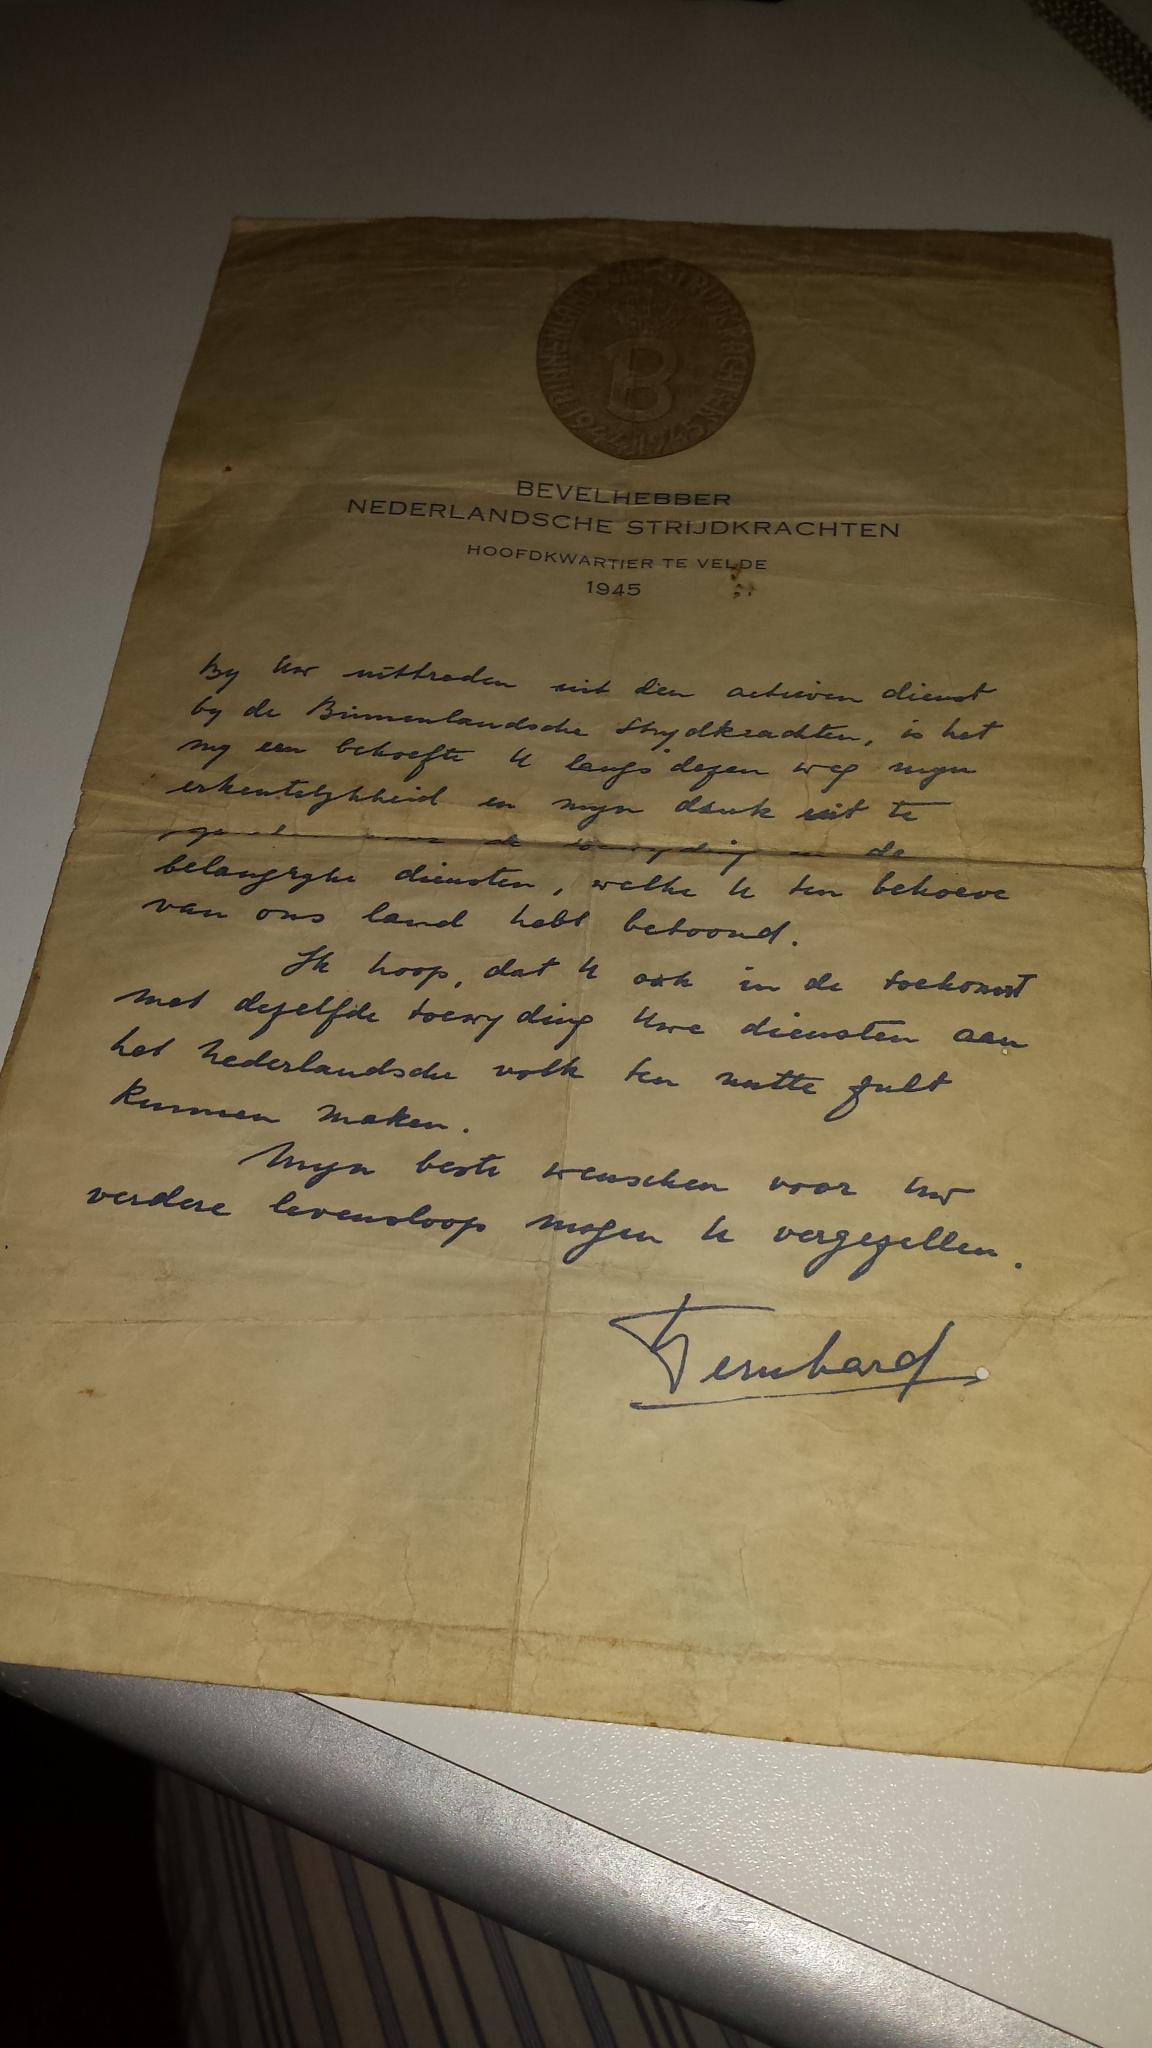 BINNENLANDSCHE STRIJDKRACHTEN
B
1944-1945
BEVELHEBBER
NEDERLANDSCHE STRIJDKRACHTEN
HOOFDKWARTIER TE VELDE
1945
By Uw uittreden uit den actieven dienst
by de Binnenlandsche Strydkrachten, is het
my een behoefte U langs dezen weg myn
erkentelykheid en myn dank uit te
de toewyding en de
belangryke diensten, welke U ten behoeve
van ons land hebt betoond.
Ik hoop, dat U ook in de toekomst
met dezelfde toewyding Uwe diensten aan
het Nederlandsche volk ten nutte zult
kunnen maken.
Myn beste wenschen voor Uw
verdere levensloop mogen U vergezellen.
Bernhard.